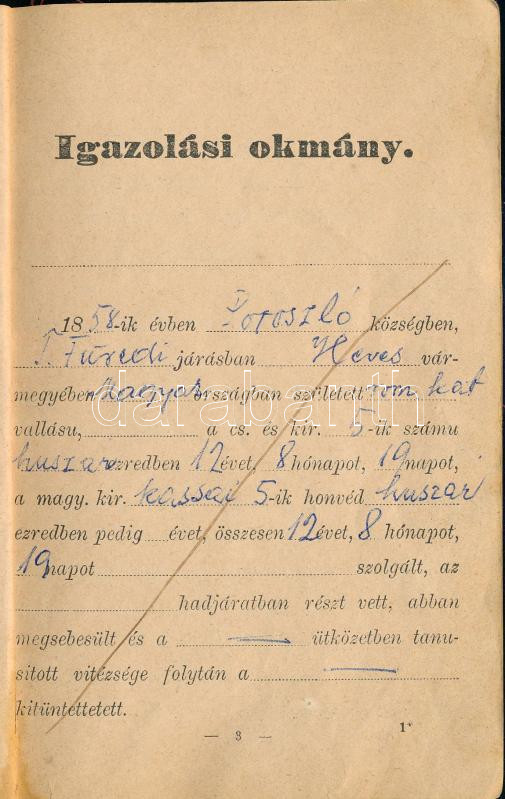 Igazolási okmány.
1858-ik évben Poroszló községben,
T. Füredi járásban Heves vár-
megyében Magyar országban született rom. kat
vallásu, a cs. és kir. 5-ik számu
huszár ezredben 12 évet, 8 hónapot, 19 napot,
a magy. kir. kassai 5-ik honvéd huszár
ezredben pedig évet, összesen 12 évet, 8 hónapot,
19 napot szolgált, az
hadjáratban részt vett, abban
megsebesült és a — ütközetben tanu-
sitott vitézsége folytán a —
kitüntettetett.
— 3 —
1*
darabanth